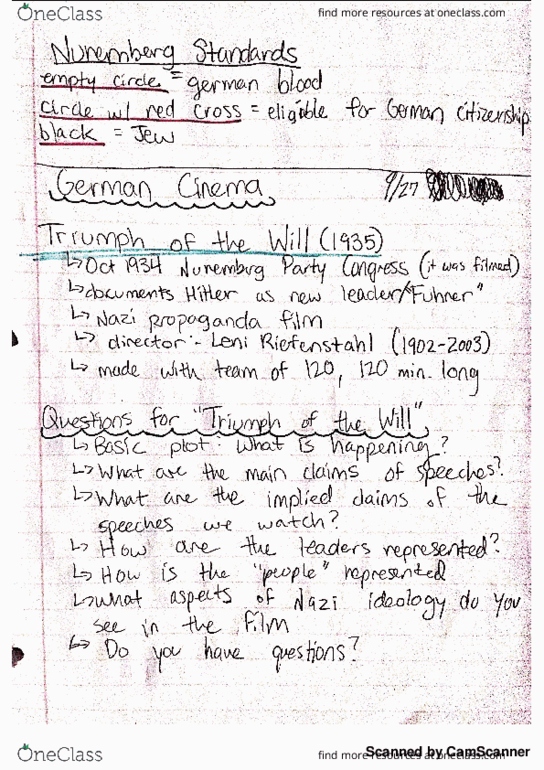 OneClass
find more resources at oneclass.com
Nuremberg Standards
empty circle = german blood
circle w/ red cross = eligible for German Citizenship
black = Jew
German Cinema
9/27
Triumph of the Will (1935)
↳ Oct 1934 Nuremburg Party Congress (it was filmed)
↳ documents Hitler as new leader/"Fuhrer"
↳ Nazi propaganda film
↳ director:- Leni Riefenstahl (1902-2003)
↳ made with team of 120, 120 min. long
Questions for "Triumph of the Will"
↳ Basic plot: what is happening?
↳ What are the main claims of speeches?
↳ What are the implied claims of the
speeches we watch?
↳ How are the leaders represented?
↳ How is the "people" represented
↳ what aspects of Nazi ideology do you
see in the film
↳ Do you have questions?
OneClass
find more resources at oneclass.com
Scanned by CamScanner